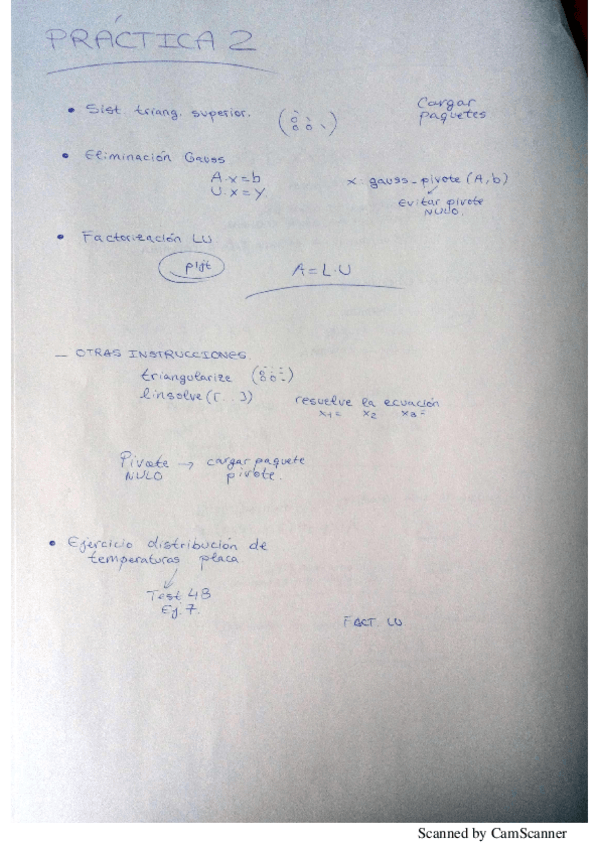 PRÁCTICA 2
• Sist. triang. superior.
Cargar
paquetes
• Eliminación Gauss
A·x=b
U·x=y
x: gauss_pivote (A,b)
Evitar pivote
NULO.
• Factorización LU
A=L·U
— OTRAS INSTRUCCIONES.
triangularize
linsolve([..])
resuelve la ecuación
x1= x2 x3=
Pivote → cargar paquete
NULO pivote.
• Ejercicio distribución de
temperaturas placa
Test 48
Ej. 7.
FACT. LU
Scanned by CamScanner